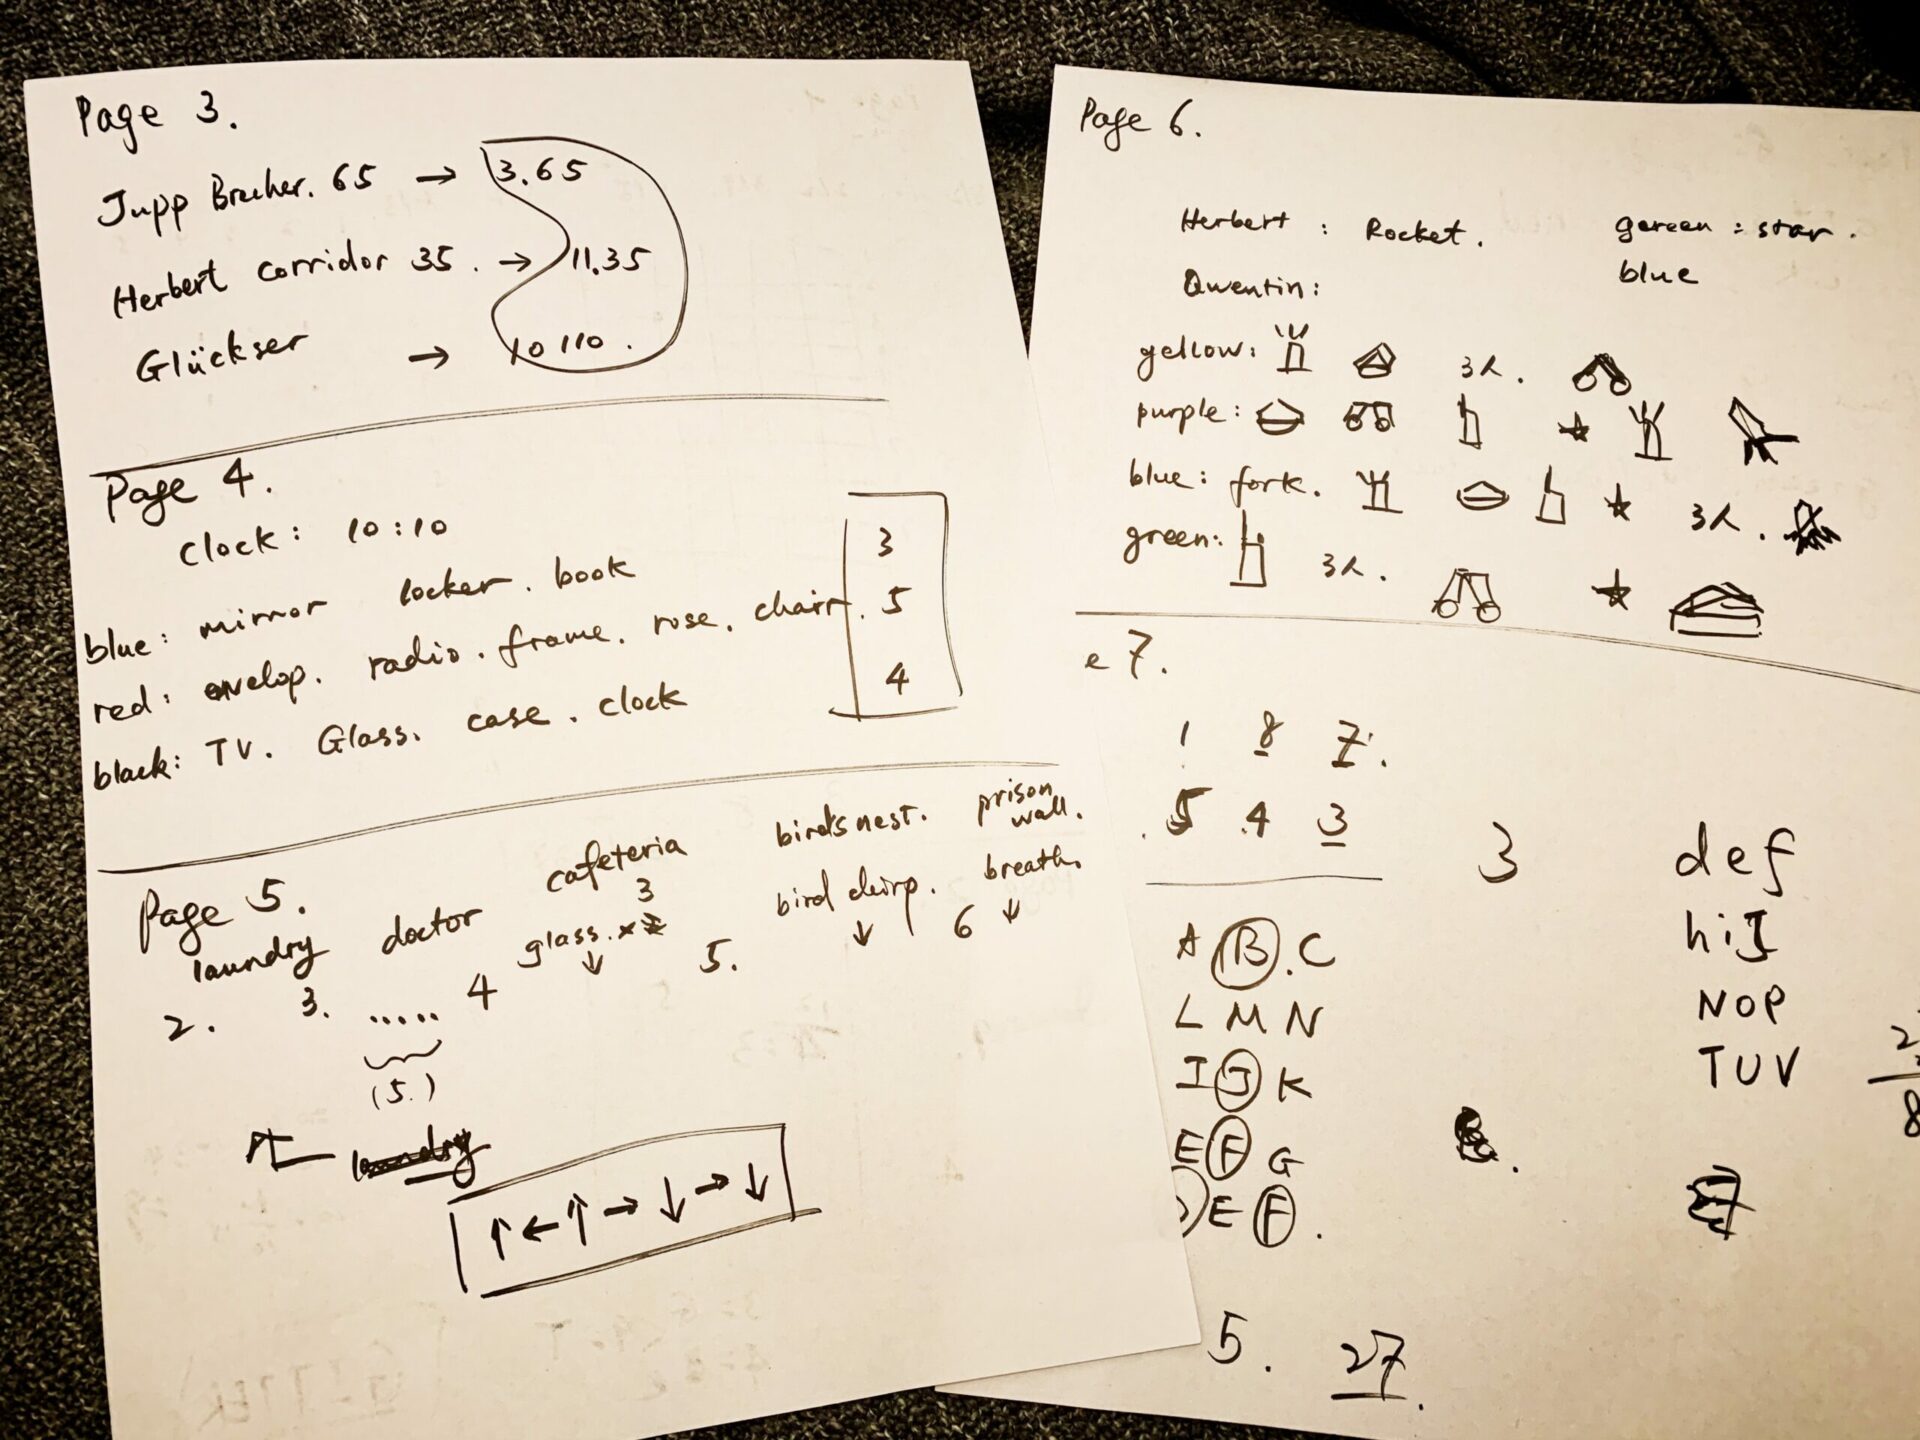 Page 3.
Jupp Brecher. 65 → 3.65
Herbert corridor 35. → 11.35
Glückser → 10 110.
Page 4.
clock: 10:10
blue: mirror locker. book 3
red: envelop. radio. frame. rose. chair. 5
black: TV. Glass. case. clock 4
Page 5.
laundry doctor cafeteria bird's nest. prison wall.
3
glass. bird chirp. breath.
↓ ↓ ↓
2. 3. ..... 4 5. 6
(5.)
laundry
↑ ← ↑ → ↓ → ↓
Page 6.
Herbert : Rocket. gereen : star.
Qwentin: blue
yellow: 3人.
purple:
blue: fork. 3人.
green: 3人.
e 7.
1 8 7.
5 4 3
3 def
A B. C hiJ
L M N NOP
I J K TUV
E F G
E F.
5. 27.